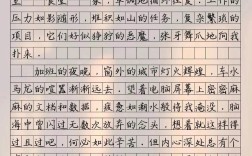 堂"、"宿舍"
压力如影随形，堆积如山的任务，复杂繁琐的
项目，它们好似狰狞的恶魔，张牙舞爪地向我
扑来。
加班的夜晚，窗外的城市灯火辉煌，车水
马龙的喧嚣渐渐远去。望着电脑屏幕上密密麻
麻的文档和数据，疲惫如潮水般将我淹没，脑
海中曾闪过无数次放弃的念头，想着就这样得
过且过吧，何必如此辛苦。但内心深处总有个